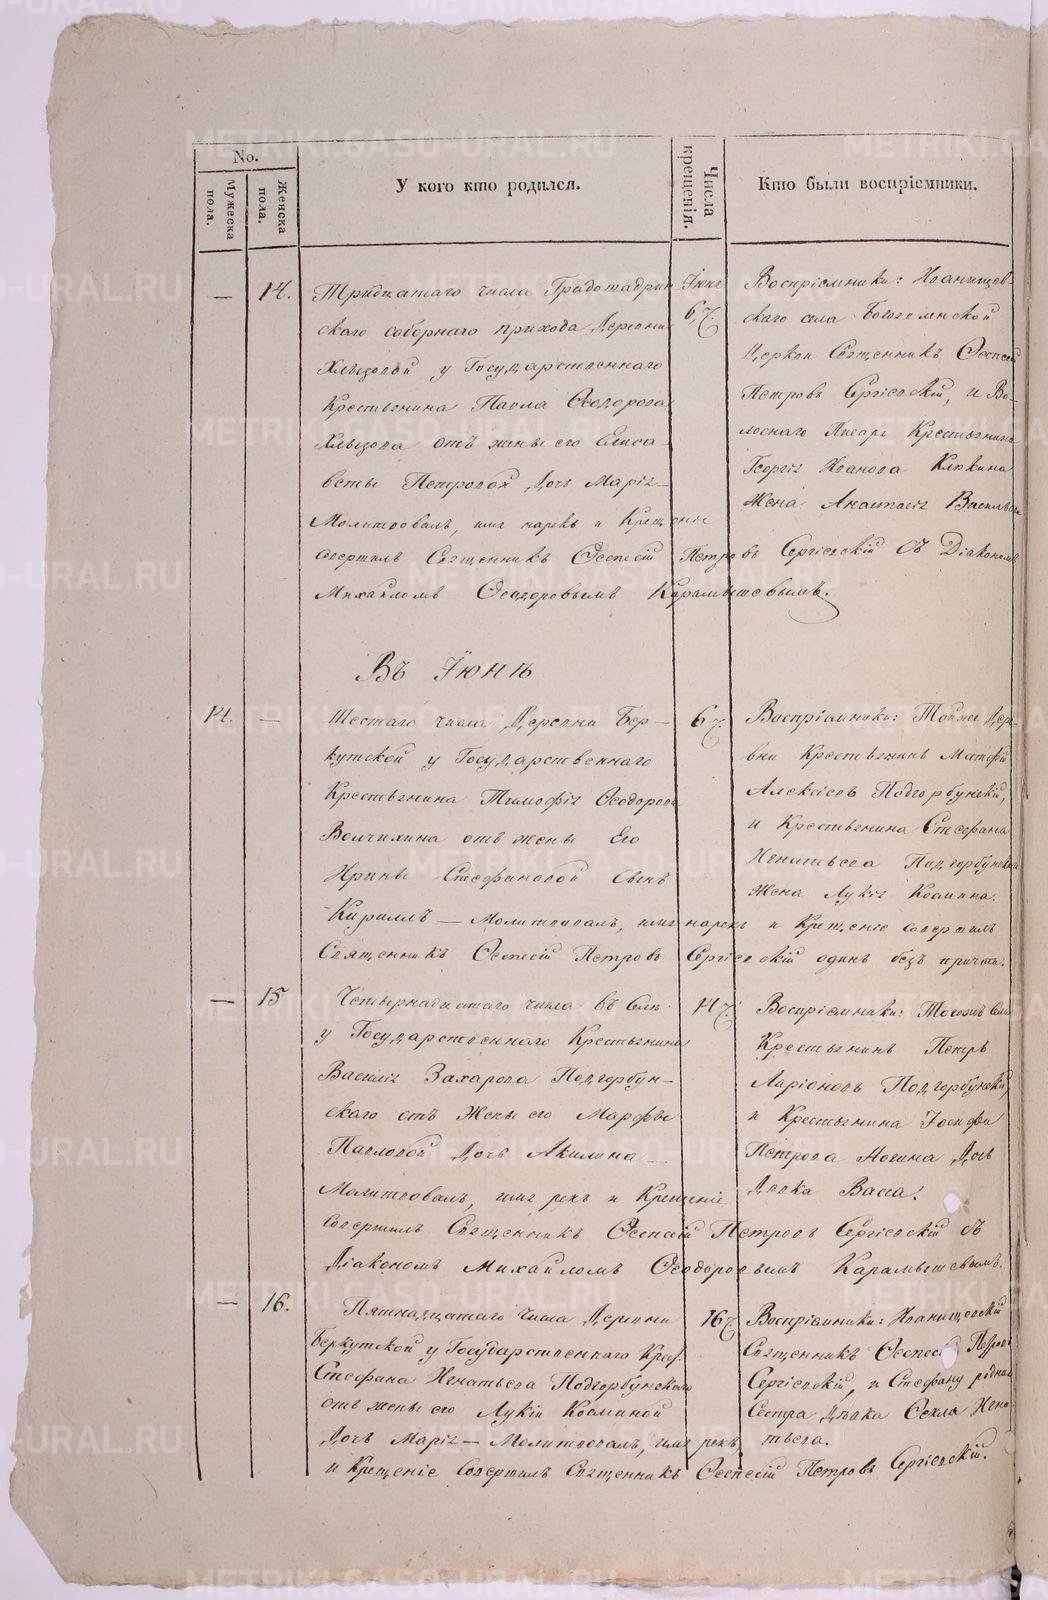 No.
Мужеска пола.
Женска пола.
У кого кто родился.
Числа крещенія.
Кто были воспріемники.
— 14.
Тридцатаго числа Градошадрин-
скаго соборнаго прихода Деревни
Хлызовой у Государственнаго
Крестьянина Павла Ѳеодорова
Хлызова отъ жены его Елиса-
веты Петровой Дочь Марія —
Іюня
6/7.
Воспріемники: Иванищев-
скаго села Богоявленской
Церкви Священникъ Евсевій
Петровъ Сергіевскій, и Во-
лоснаго Писаря Крестьянина
Георгія Иванова Клюкина
Жена Анастасія Васильева
Молитвовалъ, имя нарекъ и Крещеніе
Совершилъ Священникъ Евсевій Петровъ Сергіевскій съ Діакономъ
Михаиломъ Ѳеодоровымъ Карамышевымъ.
Въ Іюнѣ
14. —
Шестаго числа Деревни Бер-
кутской у Государственнаго
Крестьянина Тимофія Ѳеодорова
Волчихина отъ жены Его
Ирины Стефановой Сынъ
6/7.
Воспріемники: Тойже Дер-
вни Крестьянинъ Матфій
Алексіевъ Подгорбунскій,
и Крестьянина Стефана
Игнатьева Подгорбунскаго
Жена Лукія Космина.
Кириллъ — Молитвовалъ, имя нарекъ и Крещеніе совершилъ
Священникъ Евсевій Петровъ Сергіевскій одинъ безъ причта.
— 15
Четырнадцатаго числа въ Селѣ
у Государственнаго Крестьянина
Василія Захарова Подгорбун-
скаго отъ Жены его Марфы
Павловой Дочь Акилина —
14/7.
Воспріемники: Тогожъ Села
Крестьянинъ Петръ
Ларіоновъ Подгорбунскій,
и Крестьянина Іосифа
Петрова Ногина Дочь
Дѣвка Васса.
Молитвовалъ, имя рекъ и Крещеніе
Совершилъ Священникъ Евсевій Петровъ Сергіевскій съ
Діакономъ Михайломъ Ѳеодоровымъ Карамышевымъ.
— 16.
Пятнадцатаго числа Деревни
Беркутской у Государственнаго Крес.
Стефана Игнатьева Подгорбунскаго
отъ жены его Лукіи Косминой
16/7.
Воспріемники: Иванищевскій
Священникъ Евсевій Петровъ
Сергіевскій, и Стефану родная
Сестра Дѣвка Ѳекла Игна-
тьева.
Дочь Марія — Молитвовалъ, имя рекъ
и Крещеніе Совершилъ Священникъ Евсевій Петровъ Сергіевскій.
METRIKI.GASO-URAL.RU